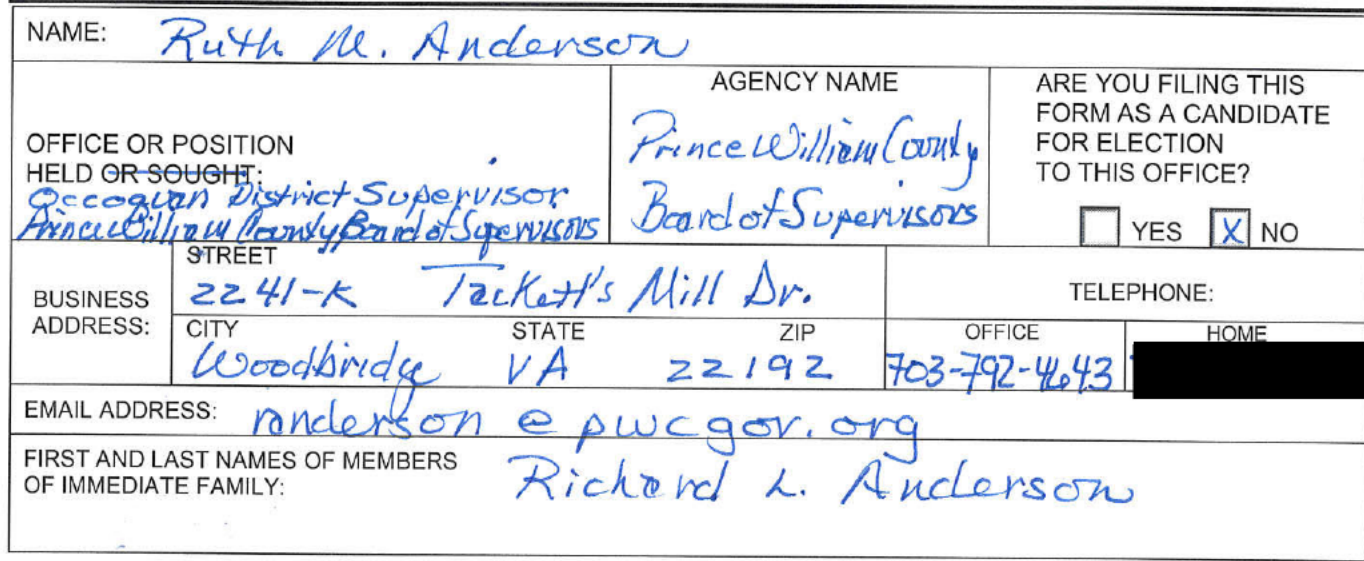 NAME: Ruth M. Anderson
OFFICE OR POSITION
HELD OR SOUGHT:
Occoquan District Supervisor
Prince William County Board of Supervisors
AGENCY NAME
Prince William County
Board of Supervisors
ARE YOU FILING THIS
FORM AS A CANDIDATE
FOR ELECTION
TO THIS OFFICE?
YES X NO
BUSINESS
ADDRESS:
STREET
2241-K Tackett's Mill Dr.
TELEPHONE:
CITY STATE ZIP OFFICE HOME
Woodbridge VA 22192 703-792-4643
EMAIL ADDRESS: randerson @ pwcgov.org
FIRST AND LAST NAMES OF MEMBERS
OF IMMEDIATE FAMILY: Richard L. Anderson